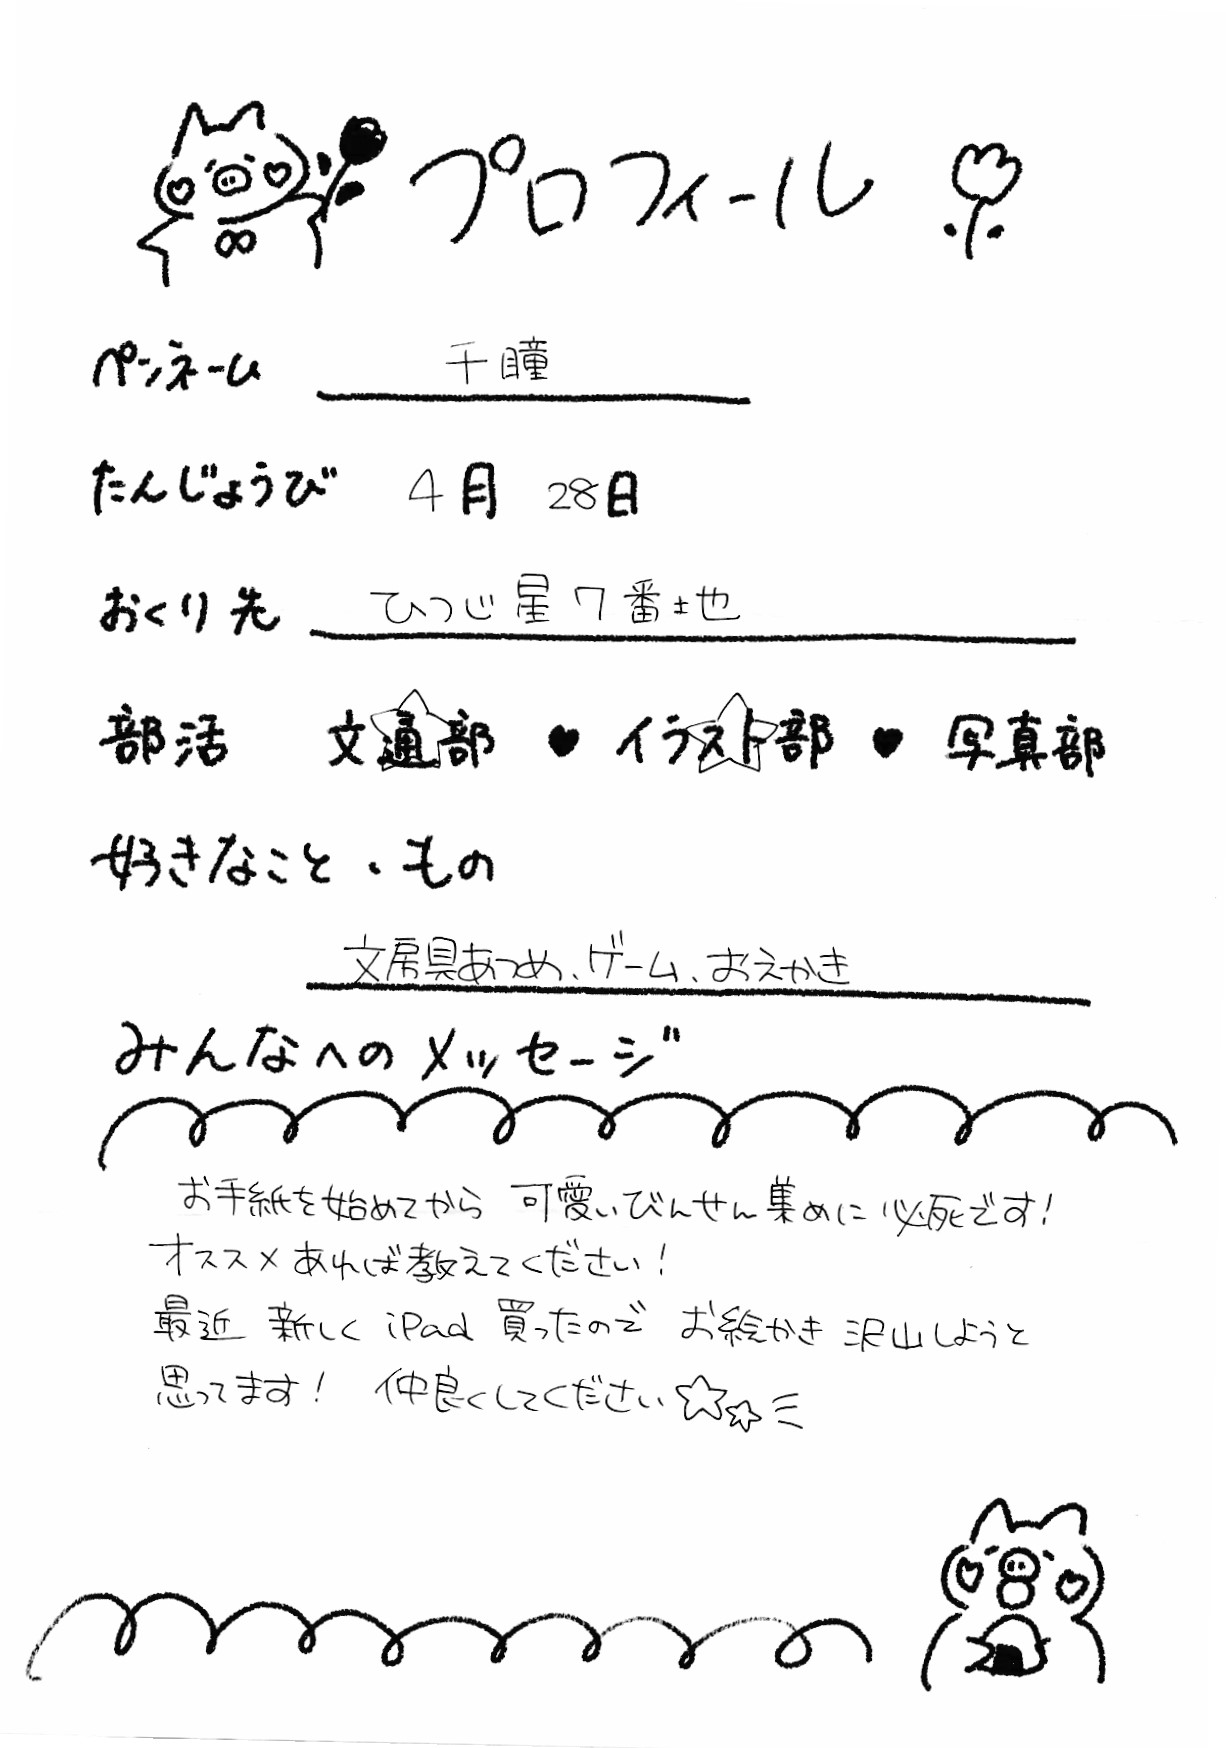 プロフィール
ペンネーム 千瞳
たんじょうび 4月 28日
おくり先 ひつじ星7番地
部活 文通部 ♥ イラスト部 ♥ 写真部
好きなこと、もの
文房具あつめ、ゲーム、おえかき
みんなへのメッセージ
お手紙を始めてから 可愛いびんせん集めに必死です!
オススメあれば教えてください!
最近 新しく iPad 買ったので お絵かき 沢山しようと
思ってます! 仲良くしてください☆☆